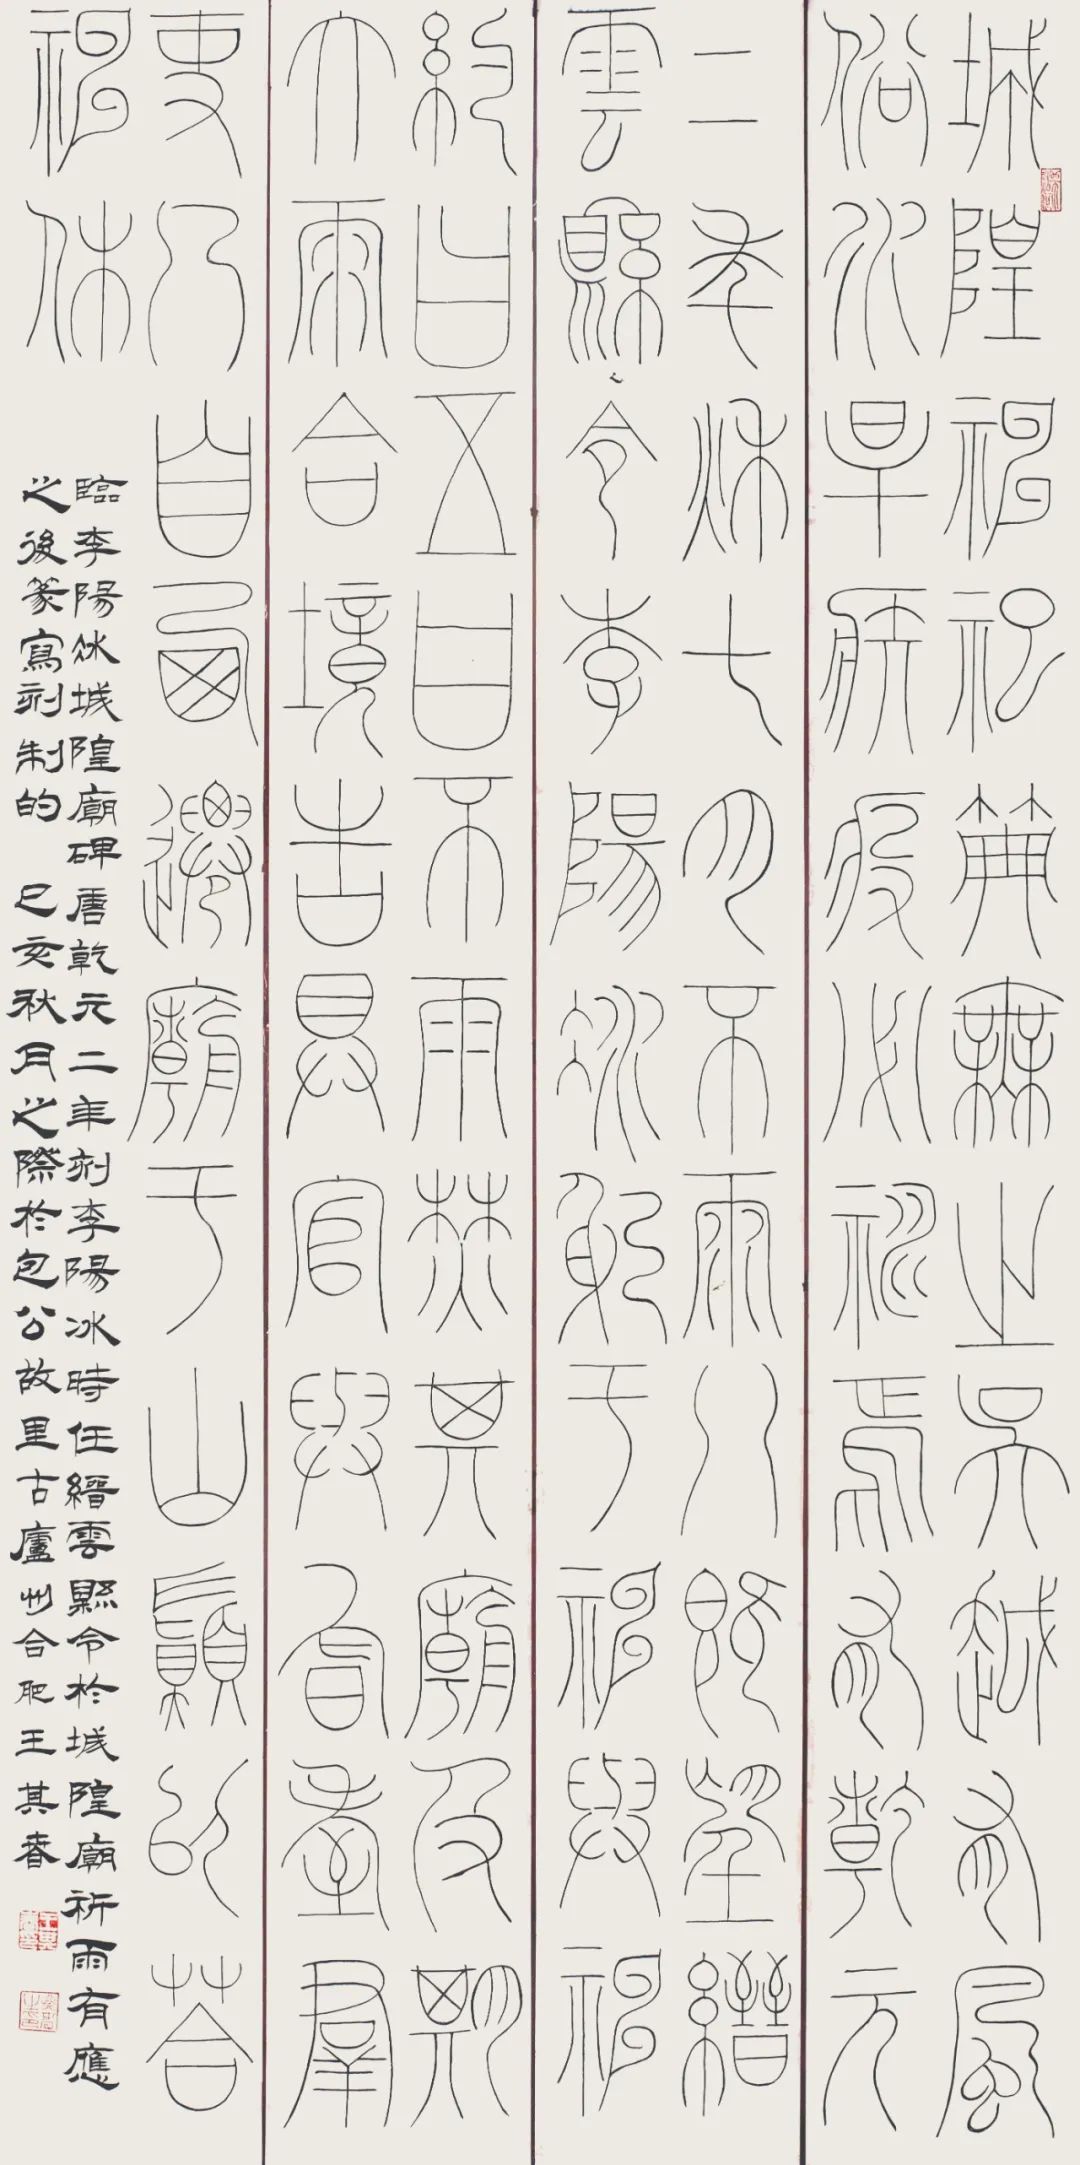 城隍神祀典無之吳越有風
俗水旱疾疫必禱焉有乾元
二年秋七月不雨八既望縉
雲縣令李陽冰躬于神與神
約曰五日不雨焚其廟及期
大雨合境告具官與耆耋群
吏乃自西遷廟于山巔以答
神休
臨李陽冰城隍廟碑唐乾元二年刻李陽冰時任縉雲縣令於城隍廟祈雨有應
之後篆寫刻制的 己亥秋月之際於包公故里古廬州合肥王其春